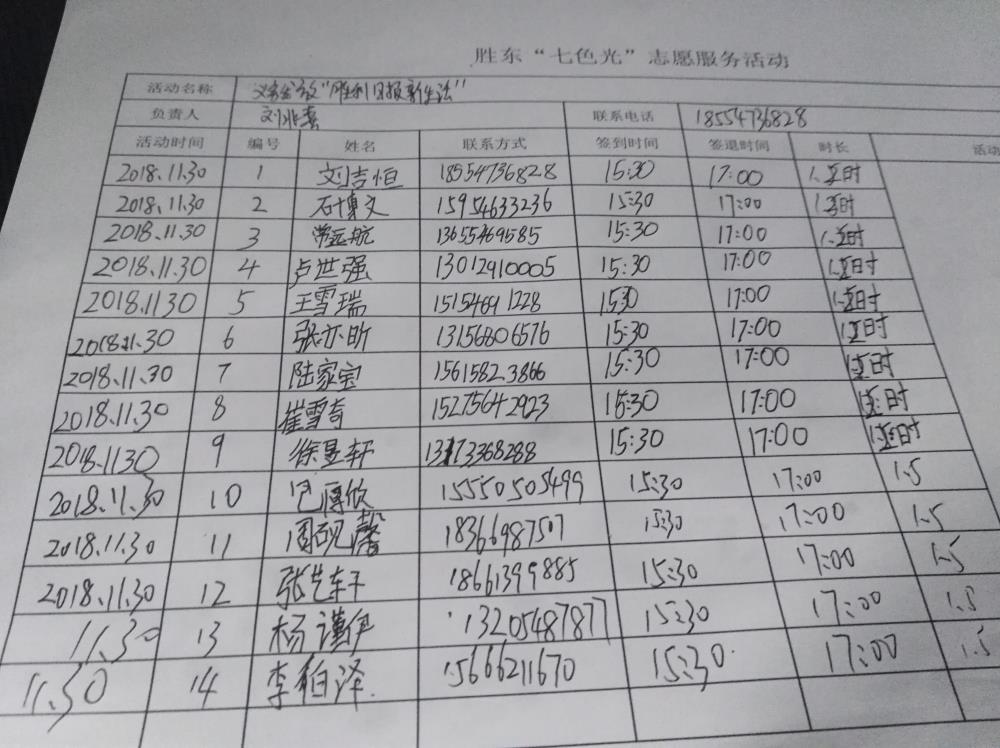 胜东“七色光”志愿服务活动
活动名称 义务分发“胜利日报新生活”
负责人 刘兆春 联系电话 18554736828
活动时间 编号 姓名 联系方式 签到时间 签退时间 时长 活动
2018.11.30 1 刘吉恒 18554736828 15:30 17:00 1.5时
2018.11.30 2 石博文 15954633236 15:30 17:00 1.5时
2018.11.30 3 常远航 13655469585 15:30 17:00 1.5时
2018.11.30 4 卢世强 13012910005 15:30 17:00 1.5时
2018.11.30 5 王雪瑞 15154691228 15:30 17:00 1.5时
2018.11.30 6 张亦昕 13156806576 15:30 17:00 1.5时
2018.11.30 7 陆家宝 15615823866 15:30 17:00 1.5时
2018.11.30 8 崔雪奇 15275642923 15:30 17:00 1.5时
2018.11.30 9 徐昱轩 13173368288 15:30 17:00 1.5时
2018.11.30 10 15550505499 15:30 17:00 1.5
2018.11.30 11 周砚馨 18366987507 15:30 17:00 1.5
2018.11.30 12 张艺轩 18661399885 15:30 17:00 1.5
11.30 13 杨谨伊 13205487877 15:30 17:00 1.5
11.30 14 李伯泽 15666211670 15:30 17:00 1.5